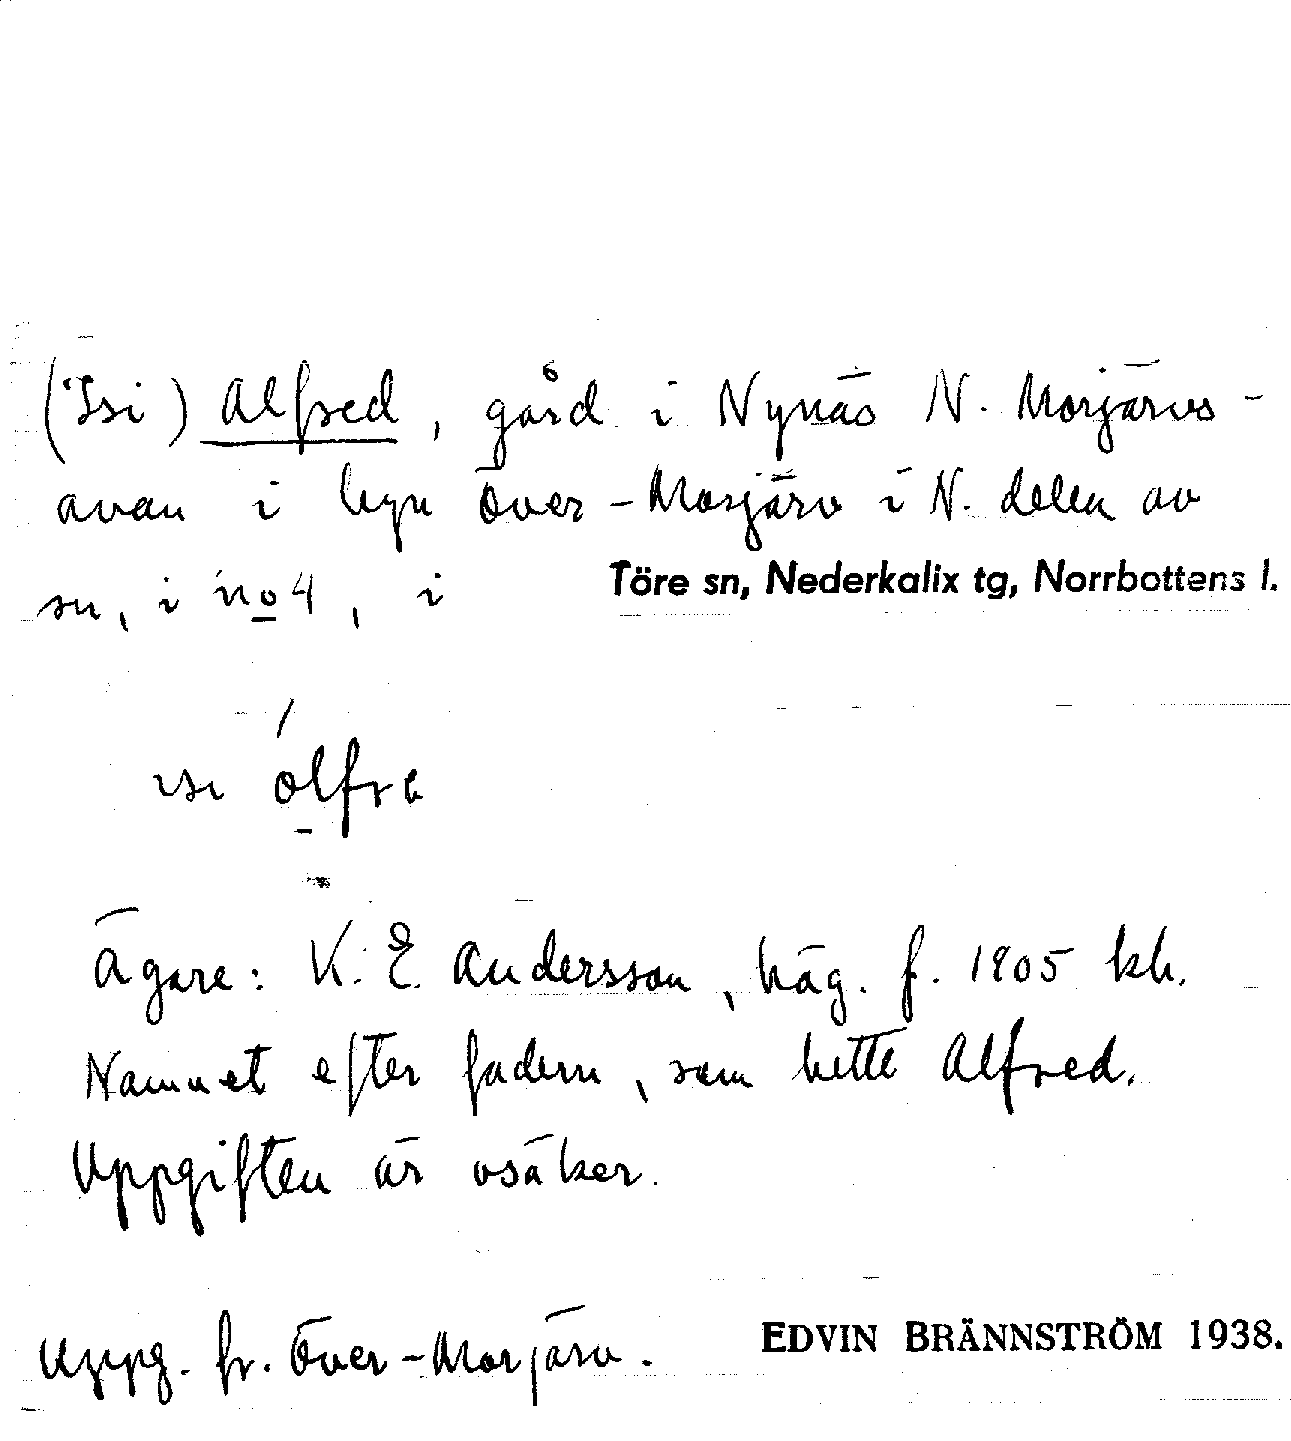 (Isi) Alfred, gård i Nynäs N. Morjärvs-
avan i byn Över-Morjärv i N. delen av
sn, i no 4, i Töre sn, Nederkalix tg, Norrbottens l.
ɪsɪ ólfrɛ
Ägare: K. E. Andersson, häg. f. 1905 kh.
Namnet efter fadern, som hette Alfred.
Uppgiften är osäker.
Uppg. fr. Över-Morjärv. EDVIN BRÄNNSTRÖM 1938.